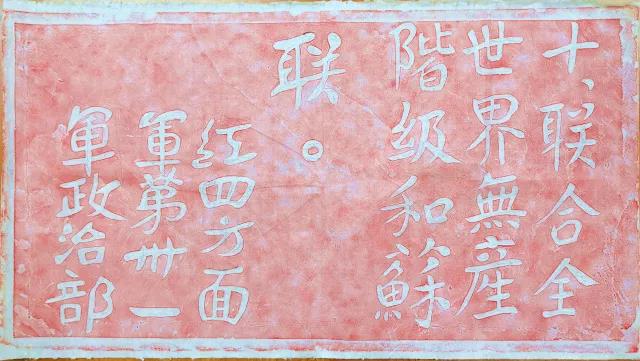 十、联合全
世界無産
階级和蘇
联。
红四方面
軍第卅一
軍政治部